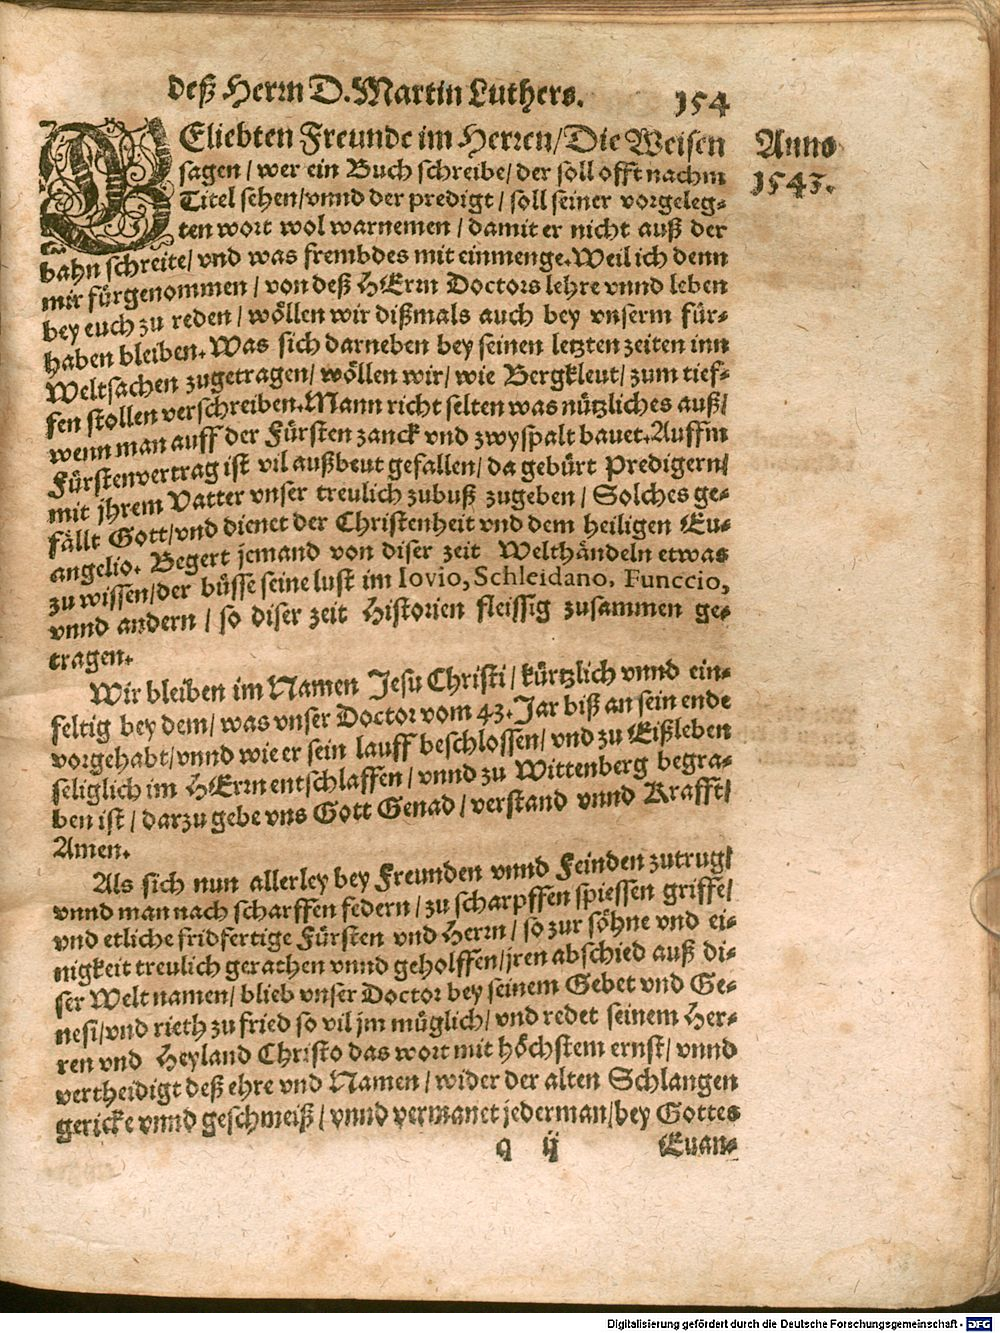 deß Herrn D. Martin Luthers.
154
GEliebten Freunde im Herren/ Die Weisen
sagen/ wer ein Buch schreibe/ der soll offt nachm
Titel sehen/ vnnd der predigt/ soll seiner vorgeleg-
ten wort wol warnemen/ damit er nicht auß der
bahn schreite/ vnd was frembdes mit einmenge. Weil ich denn
mir fürgenommen/ von deß HErrn Doctors lehre vnnd leben
bey euch zu reden/ wöllen wir dißmals auch bey vnserm für-
haben bleiben. Was sich darneben bey seinen letzten zeiten inn
Weltsachen zugetragen/ wöllen wir/ wie Bergkleut/ zum tief-
fen stollen verschreiben. Mann richt selten was nützliches auß/
wenn man auff der Fürsten zanck vnd zwyspalt bauet. Auffm
Fürstenvertrag ist vil außbeut gefallen/ da gebürt Predigern/
mit jhrem Vatter vnser treulich zubuß zugeben/ Solches ge-
fällt Gott/ vnd dienet der Christenheit vnd dem heiligen Eu-
angelio. Begert jemand von diser zeit Welthändeln etwas
zu wissen/ der büsse seine lust im Iovio, Schleidano, Funccio,
vnnd andern/ so diser zeit Historien fleissig zusammen ge-
tragen.
Wir bleiben im Namen Jesu Christi/ kürtzlich vnnd ein-
feltig bey dem/ was vnser Doctor vom 43. Jar biß an sein ende
vorgehabt/ vnnd wie er sein lauff beschlossen/ vnd zu Eißleben
seliglich im HErrn entschlaffen/ vnnd zu Wittenberg begra-
ben ist/ darzu gebe vns Gott Genad/ verstand vnnd Krafft/
Amen.
Als sich nun allerley bey Freunden vnnd Feinden zutrug/
vnnd man nach scharffen federn/ zu scharpffen spiessen griffe/
vnd etliche fridfertige Fürsten vnd Herrn/ so zur söhne vnd ei-
nigkeit treulich gerathen vnnd geholffen/ jren abschied auß di-
ser Welt namen/ blieb vnser Doctor bey seinem Gebet vnd Ge-
nesi/ vnd rieth zu fried so vil jm müglich/ vnd redet seinem Her-
ren vnd Heyland Christo das wort mit höchstem ernst/ vnnd
vertheidigt deß ehre vnd Namen/ wider der alten Schlangen
gericke vnnd geschmeiß/ vnnd vermanet jederman/ bey Gottes
q ij
Euan-
Anno
1543.
Digitalisierung gefördert durch die Deutsche Forschungsgemeinschaft - DFG